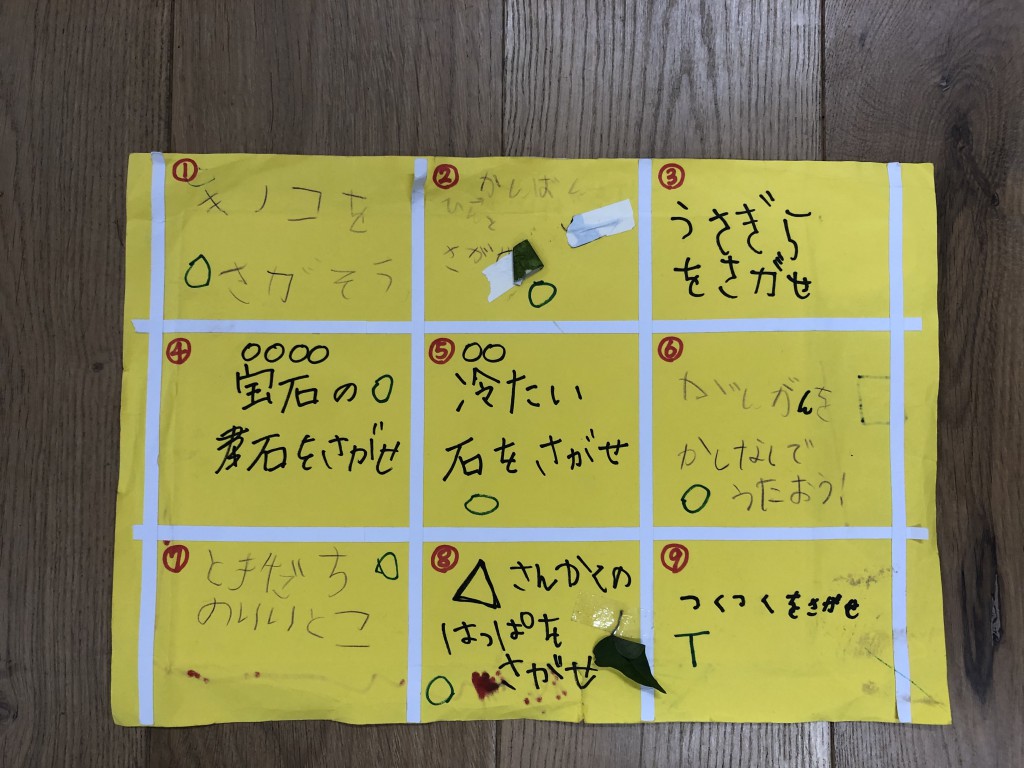 ①
キノコを
さがそう
②
かんばん
さがせ
③
うさぎら
をさがせ
④
宝石の
石をさがせ
⑤
冷たい
石をさがせ
⑥
かしなしで
うたおう!
⑦
ともだち
のいいとこ
⑧
さんかくの
はっぱを
さがせ
⑨
つくつくをさがせ
T